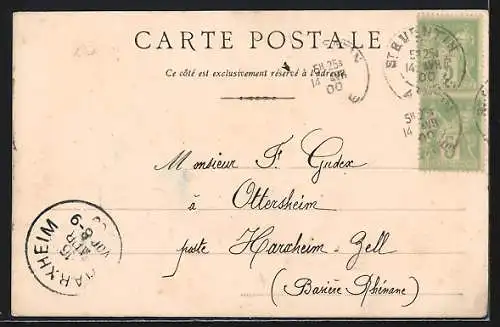 CARTE POSTALE
Ce côté est exclusivement réservé à l'adresse
5H 25S
14 AVR
00
ST QUENTIN
5H 25S
14 AVR
00
5H 25S
14 AVR
00
Monsieur F. Gudex
à
Ottersheim
poste Harxheim-Zell
(Bavière Rhénane)
HARXHEIM
16
APR
8-9